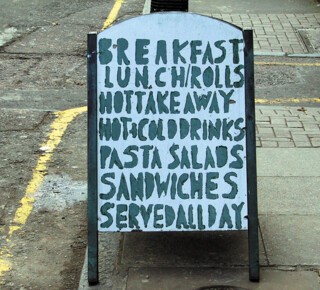 BREAKFAST
LUNCH/ROLLS
HOT TAKE AWAY
HOT+COLD DRINKS
PASTA SALADS
SANDWICHES
SERVED ALL DAY